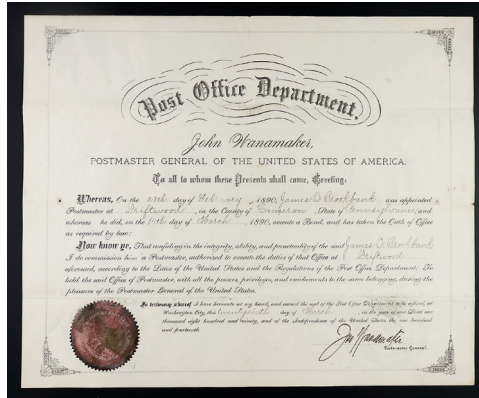 Post Office Department.
John Wanamaker,
POSTMASTER GENERAL OF THE UNITED STATES OF AMERICA.
To all to whom these Presents shall come, Greeting:
Whereas, On the day of 1890, James Brookbank was appointed
Postmaster at Driftwood, in the County of Cameron, State of Pennsylvania, and
whereas he did, on the 14th day of March, 1890, execute a Bond, and has taken the Oath of Office
as required by law;
Now know ye, That confiding in the integrity, ability, and punctuality of the said James Brookbank
I do commission him a Postmaster, authorized to execute the duties of that Office at Driftwood
aforesaid, according to the Laws of the United States and the Regulations of the Post Office Department: To
hold the said Office of Postmaster, with all the powers, privileges, and emoluments to the same belonging, during the
pleasure of the Postmaster General of the United States.
In testimony whereof I have hereunto set my hand, and caused the seal of the Post Office Department to be affixed, at
Washington City, this day of March, in the year of our Lord one
thousand eight hundred and ninety, and of the Independence of the United States the one hundred
and fourteenth.
Jno Wanamaker
Postmaster General.